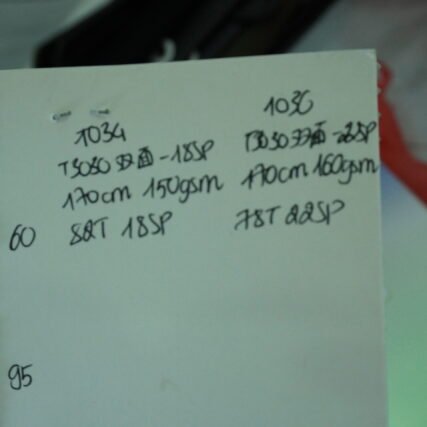 1034
T3030 双面 -18SP
170cm 150gsm
60 82T 18SP
T3030 双面 -22SP
170cm 160gsm
78T 22SP
95